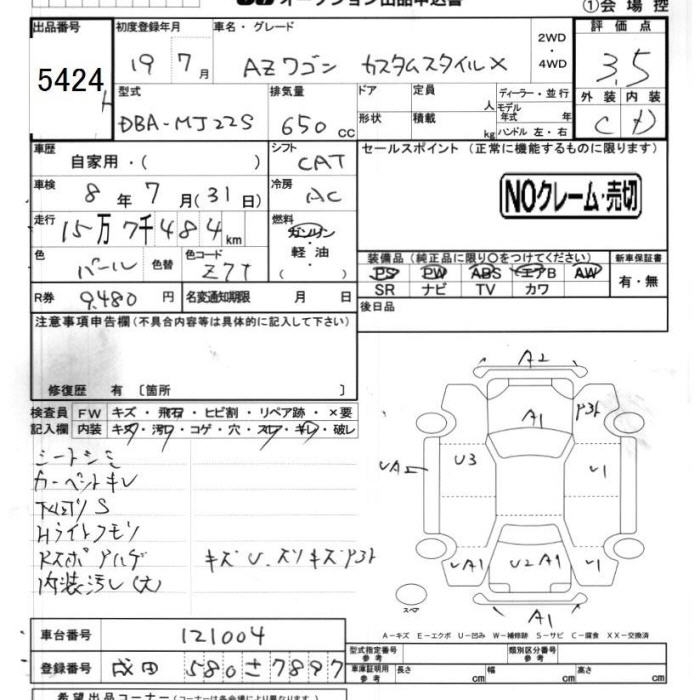 ①会場控
出品番号 初度登録年月 車名・グレード 評価点
5424 19 7月 AZワゴン カスタムスタイルX 2WD・4WD 3.5
型式 排気量 ドア 定員 人 ディーラー・並行 外装 内装
DBA-MJ22S 650cc 形状 積載 kg モデル年式 年 ハンドル 左・右 C D
車歴 自家用・( ) シフト CAT セールスポイント(正常に機能するものに限ります)
車検 8年7月(31日) 冷房 AC NOクレーム・売切
走行 15万7千484km 燃料 ガソリン・軽油・( )
色 パール 色替 色コード Z7T
装備品(純正品に限り○をつけてください) 新車保証書
PS PW ABS エアB AW 有・無
SR ナビ TV カワ
R券 9,480円 名変通知期限 月 日 後日品
注意事項申告欄(不具合内容等は具体的に記入して下さい)
修復歴 有 〔箇所 〕
検査員 FW キズ・飛石・ヒビ割・リペア跡・×要
記入欄 内装 キズ・汚れ・コゲ・穴・スレ・キレ・破レ
シートシミ
カーペットキレ
下廻りS
Hライトクモリ
内装汚レ(大)
A2
A1
U3
U1
A1
U2A1
A1
スペア
A-キズ E-エクボ U-凹み W-補修跡 S-サビ C-腐食 XX-交換済
車台番号 121004
登録番号 成田 580 さ 7897
型式指定番号 参考 類別区分番号 参考
車庫証明用 参考 長さ cm 幅 cm 高さ cm
希望出品コーナー